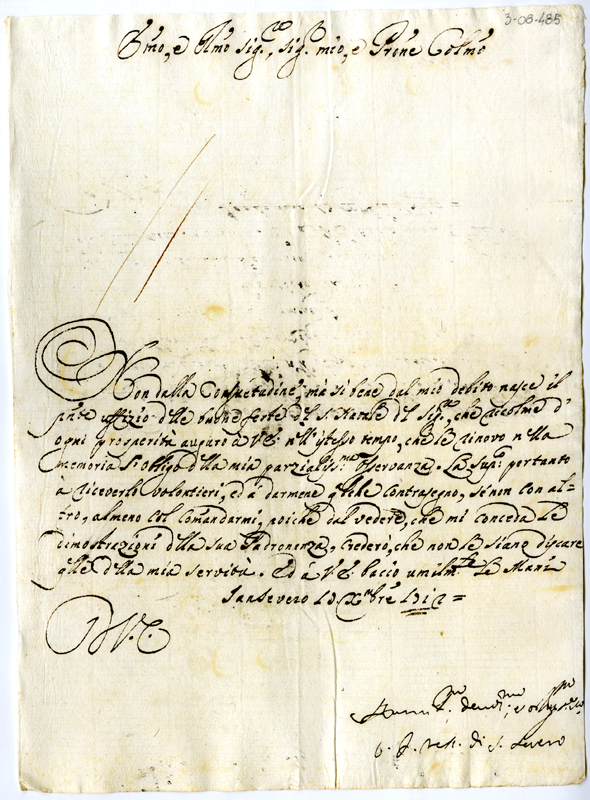 3-08-485
Emo, e Rmo Sig.re, Sig.r mio, e Prone Colmo
Non dalla Consuetudine, ma si bene dal mio debito nasce il
pnte uffizio dlle buone feste del S. Natale del Sig.re, che ricolme d'
ogni prosperità auguro à V.E. nell'istesso tempo, che le rinovo nella
memoria l'obligo dlla mia parzialiss.ma osservanza. La sup.co pertanto
à riceverlo volontieri, ed à darmene qlche contrasegno, se non con al=
tro, almeno col Comandarmi, poiche dal vedere, che mi conceda le
dimostrazioni dlla sua Padronanza, crederò, che non le siano discare
qlle della mia servitù. Ed à V.E. bacio umilm.te le Mani
Sansevero 13 Xmbre 1712=
D V.E.
Humil.mo devot.mo, e
di S. Severo